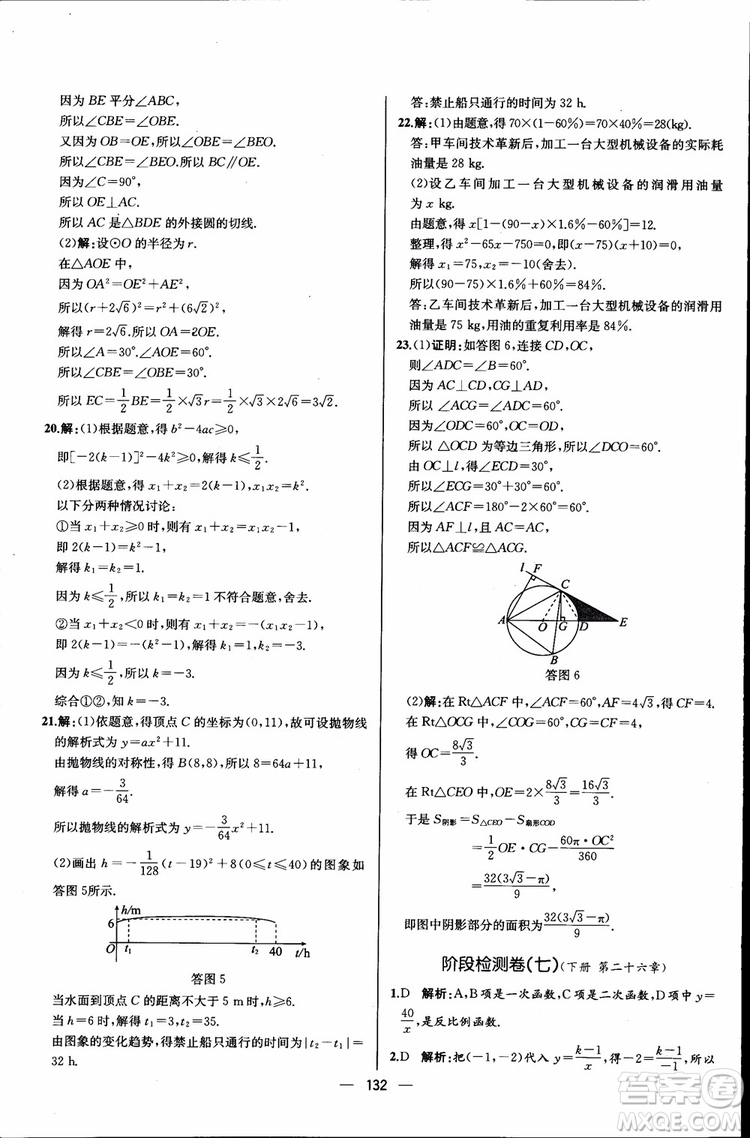 因为 BE 平分∠ABC,
所以∠CBE=∠OBE.
又因为 OB=OE,所以∠OBE=∠BEO.
所以∠CBE=∠BEO.所以 BC∥OE.
因为∠C=90°,
所以 OE⊥AC.
所以 AC 是△BDE 的外接圆的切线.
(2)解:设⊙O 的半径为 r.
在△AOE 中,
因为 OA²=OE²+AE²,
所以(r+2√6)²=r²+(6√2)².
解得 r=2√6.所以 OA=2OE.
所以∠A=30°.∠AOE=60°.
所以∠CBE=∠OBE=30°.
所以 EC=1/2 BE=1/2×√3 r=1/2×√3×2√6=3√2.
20.解:(1)根据题意,得 b²-4ac≥0,
即[-2(k-1)]²-4k²≥0,解得 k≤1/2.
(2)根据题意,得 x₁+x₂=2(k-1),x₁x₂=k².
以下分两种情况讨论:
①当 x₁+x₂≥0 时,则有 x₁+x₂=x₁x₂-1,
即 2(k-1)=k²-1.
解得 k₁=k₂=1.
因为 k≤1/2,所以 k=1 不符合题意,舍去.
②当 x₁+x₂<0 时,则有 x₁+x₂=-(x₁x₂-1),
即 2(k-1)=-(k²-1).解得 k₁=1,k₂=-3.
因为 k≤1/2,所以 k=-3.
综合①②,知 k=-3.
21.解:(1)依题意,得顶点 C 的坐标为(0,11),故可设抛物线
的解析式为 y=ax²+11.
由抛物线的对称性,得 B(8,8),所以 8=64a+11.
解得 a=-3/64.
所以抛物线的解析式为 y=-3/64x²+11.
(2)画出 h=-1/128(t-19)²+8(0≤t≤40)的图象如
答图 5所示.
h/m
6
O t₁ t₂ 40 t/h
答图 5
当水面到顶点 C 的距离不大于 5 m时,h≥6.
当 h=6时,解得 t₁=3,t₂=35.
由图象的变化趋势,得禁止船只通行的时间为|t₂-t₁|=
32 h.
答:禁止船只通行的时间为 32 h.
22.解:(1)由题意,得 70×(1-60%)=70×40%=28(kg).
答:甲车间技术革新后,加工一台大型机械设备的实际耗
油量是 28 kg.
(2)设乙车间加工一台大型机械设备的润滑用油量
为 x kg.
由题意,得 x[1-(90-x)×1.6%-60%]=12.
整理,得 x²-65x-750=0,即(x-75)(x+10)=0.
解得 x₁=75,x₂=-10(舍去).
所以(90-75)×1.6%+60%=84%.
答:乙车间技术革新后,加工一台大型机械设备的润滑用
油量是 75 kg,用油的重复利用率是 84%.
23.(1)证明:如答图 6,连接 CD,OC,
则∠ADC=∠B=60°.
因为 AC⊥CD,CG⊥AD,
所以∠ACG=∠ADC=60°.
因为∠ODC=60°,OC=OD,
所以△OCD 为等边三角形,所以∠DCO=60°.
因为 OC⊥l,所以∠ECD=30°.
所以∠ECG=30°+30°=60°.
所以∠ACF=180°-2×60°=60°.
因为 AF⊥l,且 AC=AC,
所以△ACF≌△ACG.
l F
C
A O G D E
B
答图 6
(2)解:在 Rt△ACF 中,∠ACF=60°,AF=4√3,得 CF=4.
在 Rt△OCG 中,∠COG=60°,CG=CF=4,
得 OC=8√3/3.
在 Rt△CEO 中,OE=2×8√3/3=16√3/3.
于是 S阴影=S△CEO-S扇形COD
=1/2 OE·CG-60π·OC²/360
=32(3√3-π)/9,
即图中阴影部分的面积为32(3√3-π)/9.
阶段检测卷(七)(下册 第二十六章)
1.D 解析:A,B项是一次函数,C项是二次函数,D项 y=
40/x,是反比例函数.
2.D 解析:把(-1,-2)代入 y=k-1/x,得-2=k-1/-1,所以
— 132 —
答案圈